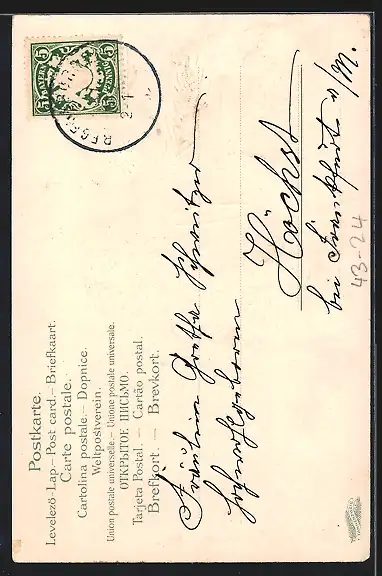 Postkarte.
Levelező-Lap. – Post card. – Briefkaart.
Carte postale.
Cartolina postale. – Dopnice.
Weltpostverein.
Union postale universelle. – Unione postale universale.
ОТКРЫТОЕ ПИСЬМО.
Tarjeta Postal. – Cartão postal.
Brefkort. – Brevkort.
BAYERN
5 5
5 5
PFENNIG
Fräulein Gretha
Hochwohlgeboren
Höchst
bei Frankfurt a/M.
43-24